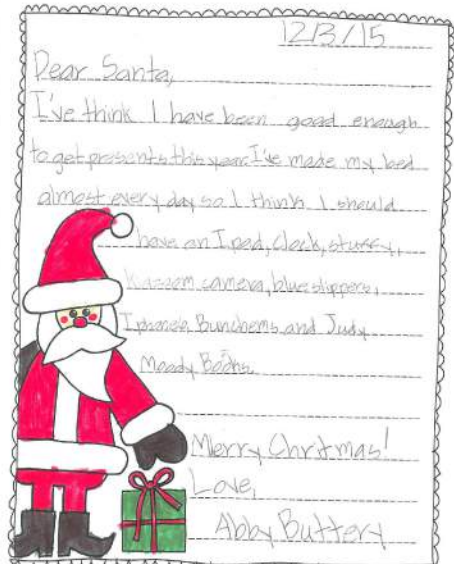 12/3/15
Dear Santa,
I've think I have been good enough
to get presents this year. I've made my bed
almost every day so I think I should
have an Ipad, Clock, stuffy,
Kazoom camera, blue slippers,
Iphone, Bunchems and Judy
Moody Books.
Merry Chritmas!
Love,
Abby Buttery